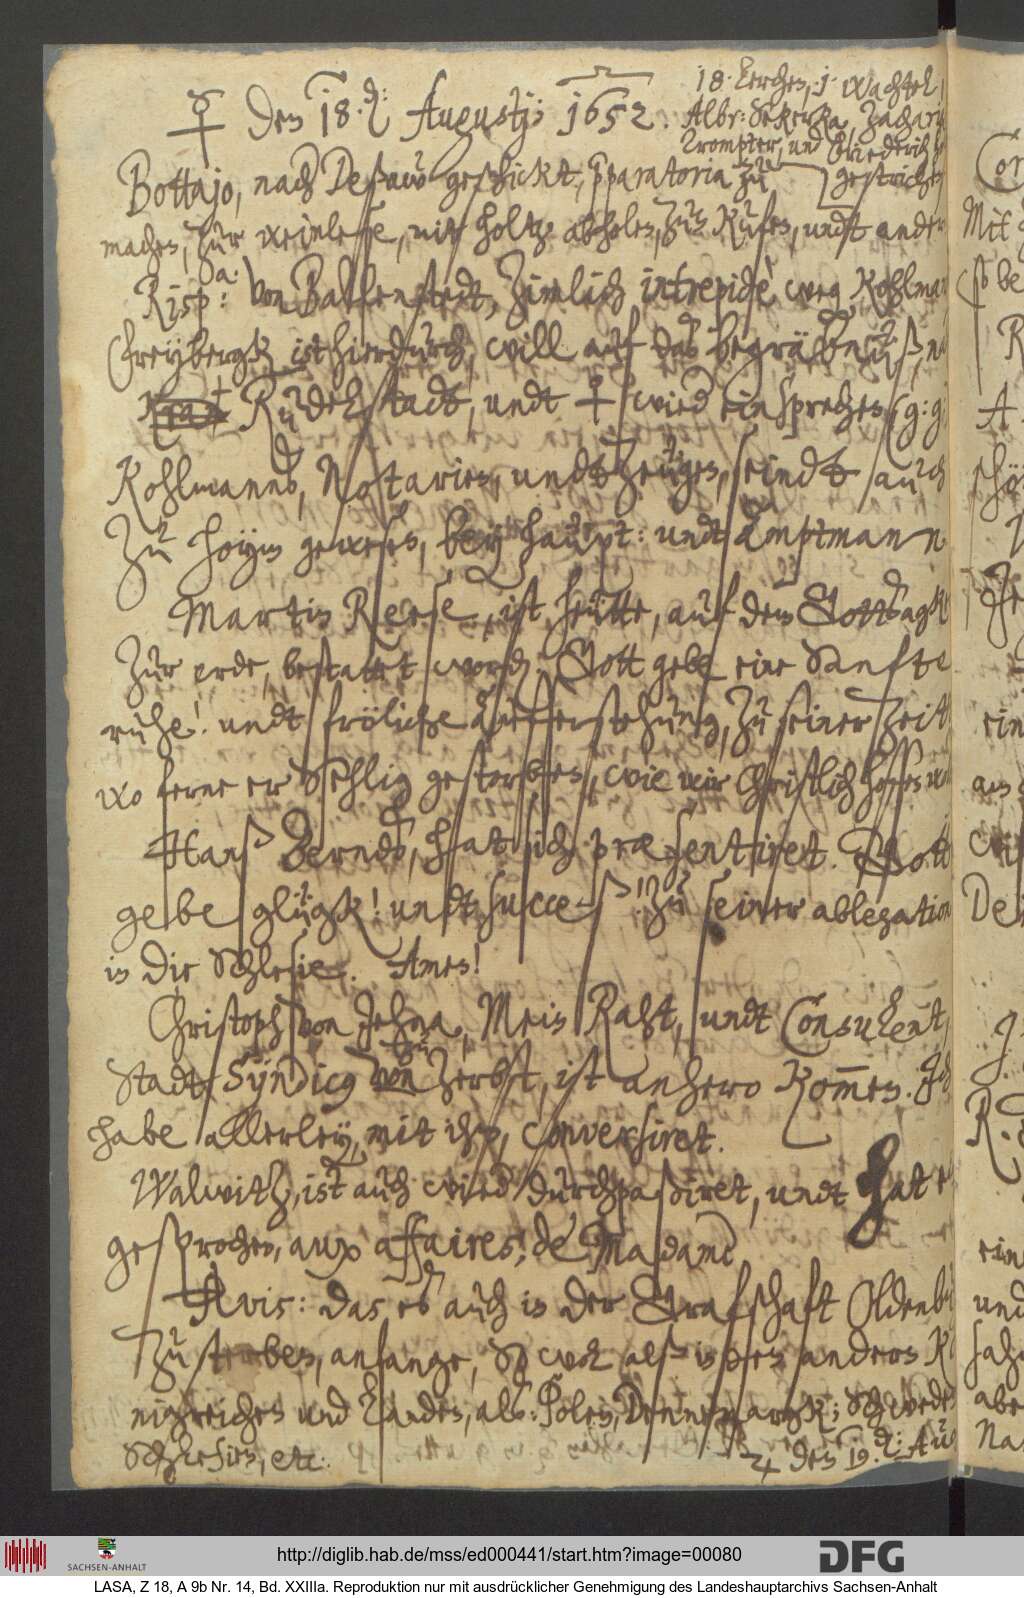 ☿ den 18. d: Augustj: 1652.
18. Lerchen, 1. Wachtel
Albr: Sekerka, Zachari
Trompter, und Friederich
gestrichen
Bottajo, nach Deßaw geschickt, pparatoria zu
machen, zur weinlese, mit holtz abholen, zun Kufen, undt ander
Risp: Da. von Ballenstedt, zimlich intrepidè weg Kohlman
Freybergk ist hierdurch, will auf das begräbnüß, n
Rudelstadt, undt ☿ wied einsprechen (g: g:
Kohlmannß, Notarien, undt Zeugen, seindt auch
zu Hoym gewesen, bey haupt: undt Amptmann
Martin Reese, ist heütte, auf dem Gottsagk
zur erde, bestattet word. Gott gebe eine Sanfte
ruhe! undt fröliche aufferstehung, zu seiner Zeit
wo ferne er Sehlig gestorben, wie wir Christlich hoffen wol
Hanß Berndt, hat sich præsentiret. Gott
gebe glügk! undt succeß! zu seiner ablegation
in die Schlesie. Amen!
Christoph von Jehna, Mein Raht, undt Consulent,
Stadt Syndicus zu Zerbst, ist anhero kommen. Ich
habe allerley, mit ihm, conversiret.
Walwitz, ist auch wied durchpaßiret, undt hat
gesprochen, aux affaires, de Madame
Avis: das es auch in der Grafschaft Oldenbu
zu sterben, anfange, So wol alß in den andern K
nigreichen und Landen, als: Polen, Dennemargk; Schweden
Schlesien, etc:
♃ den 19. d: Au
http://diglib.hab.de/mss/ed000441/start.htm?image=00080
SACHSEN-ANHALT
DFG
LASA, Z 18, A 9b Nr. 14, Bd. XXIIIa. Reproduktion nur mit ausdrücklicher Genehmigung des Landeshauptarchivs Sachsen-Anhalt